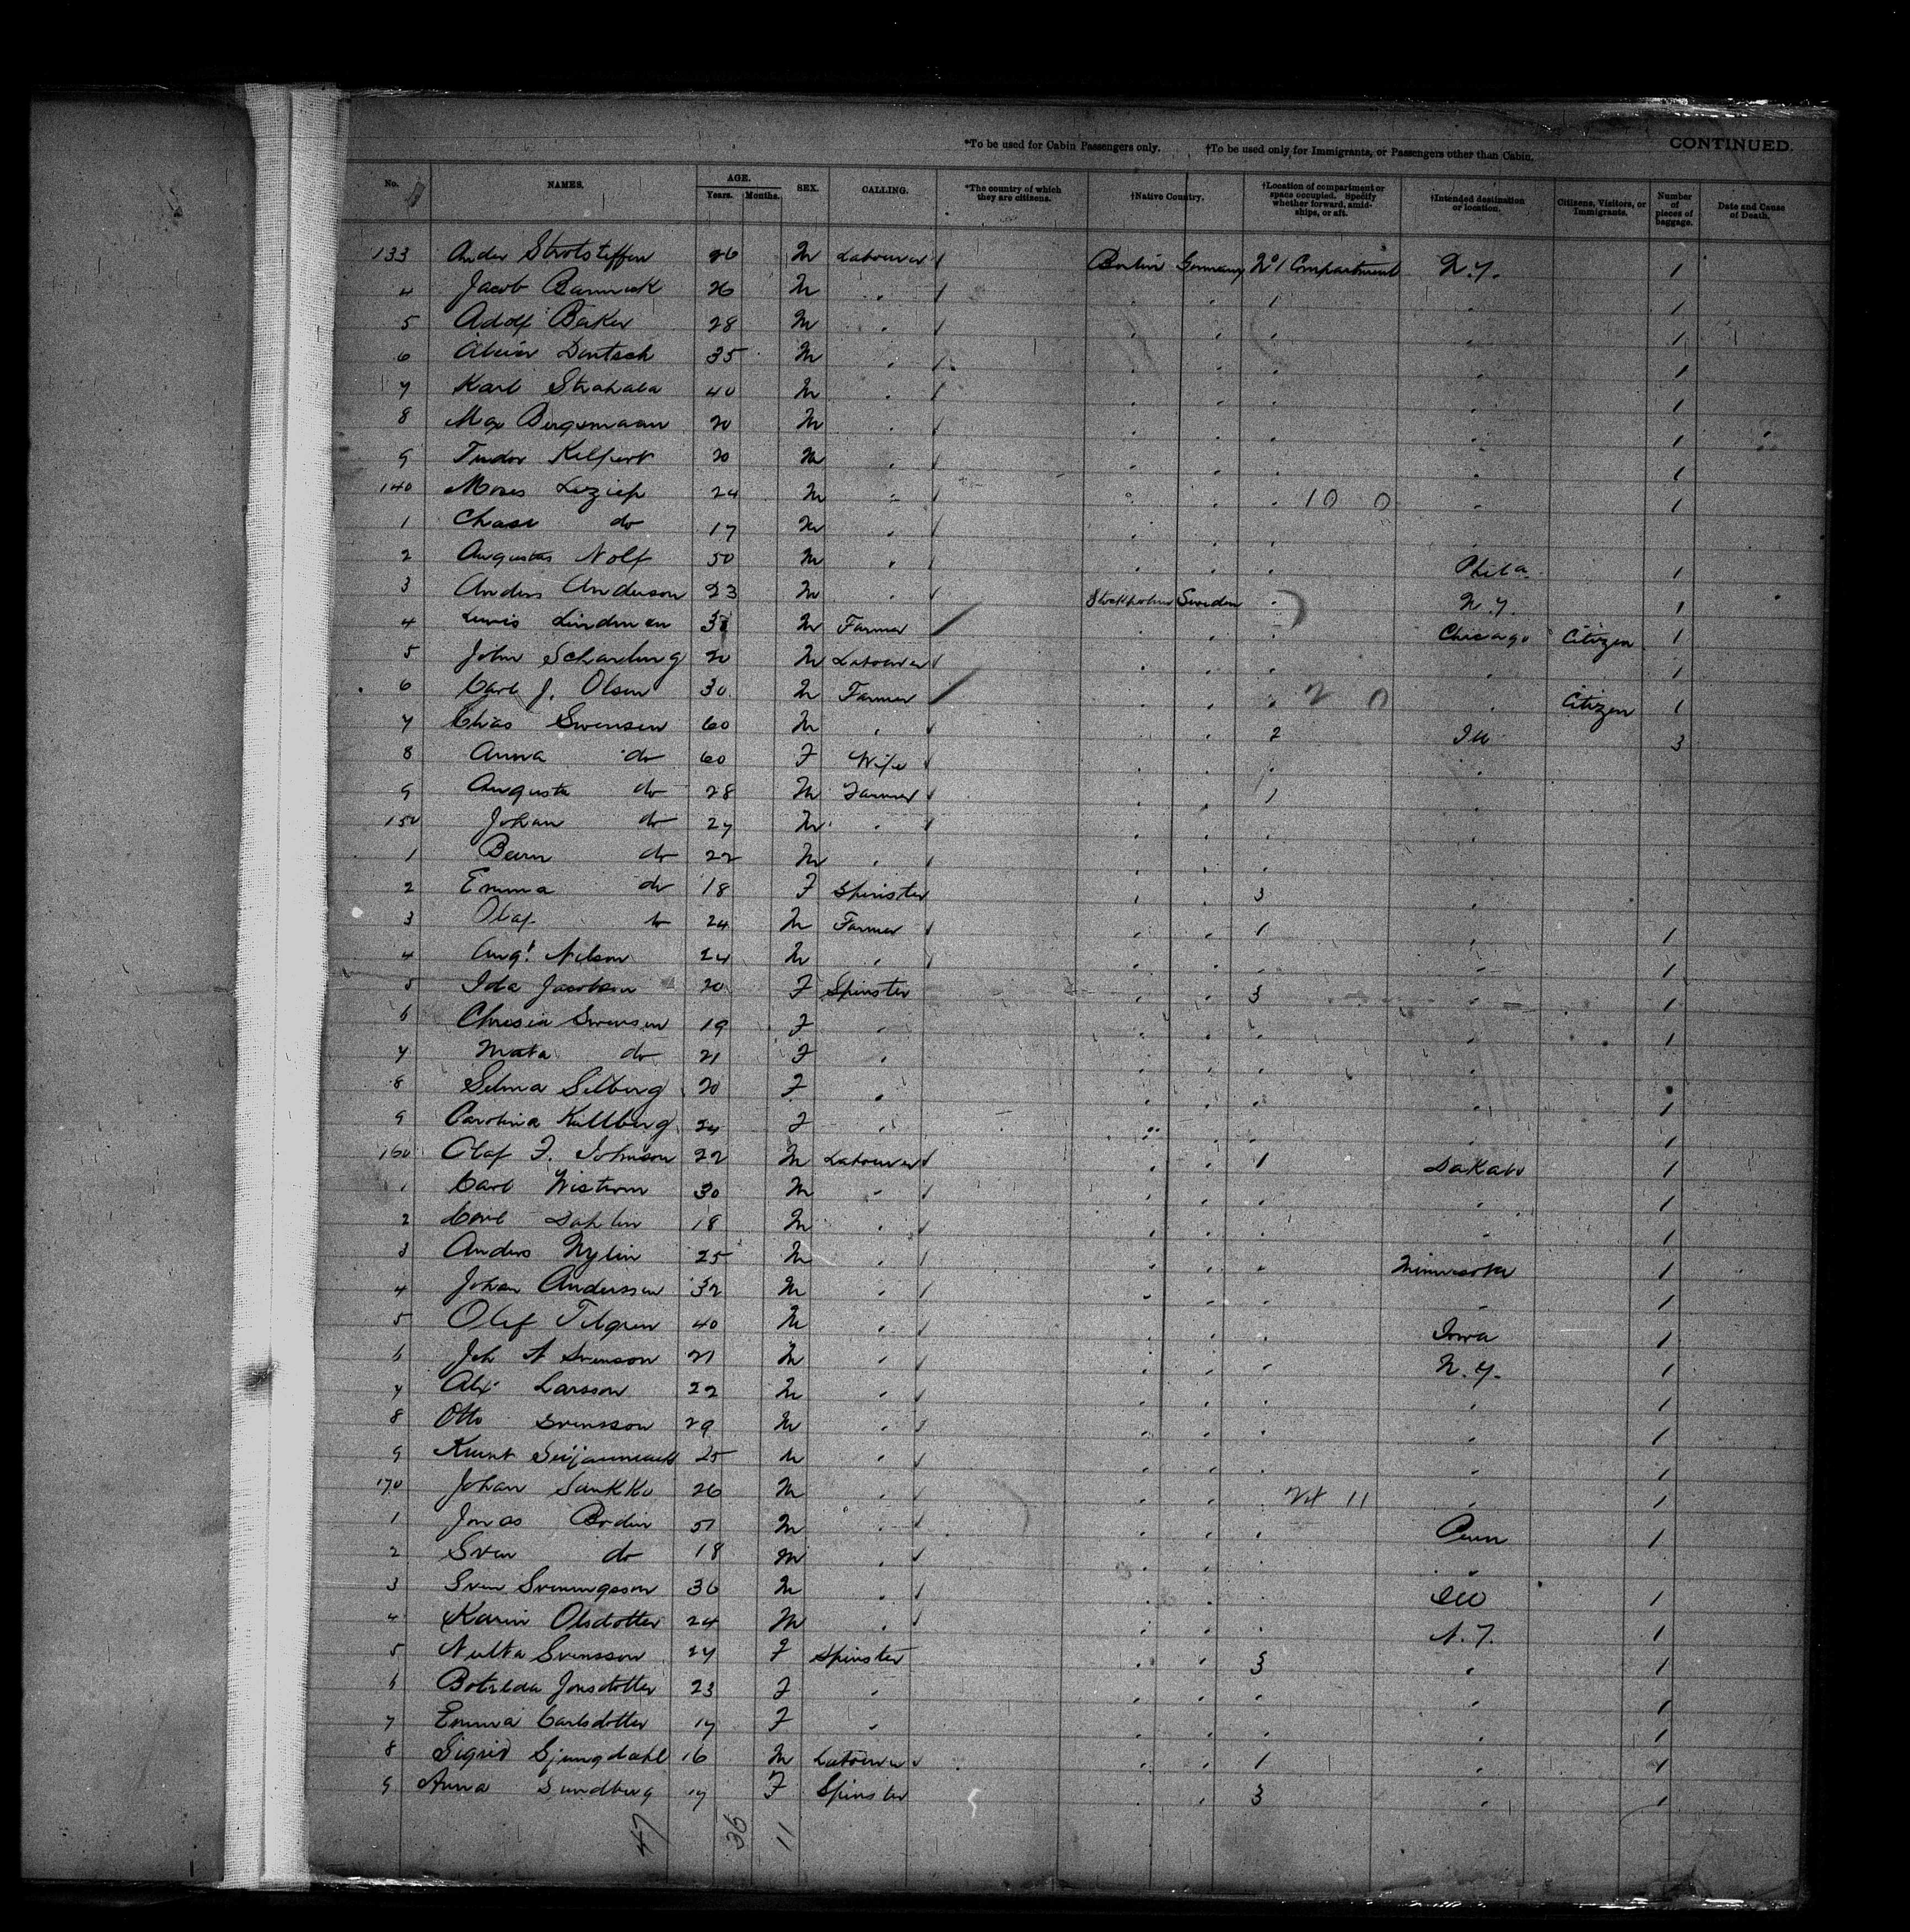 *To be used for Cabin Passengers only. †To be used only for Immigrants, or Passengers other than Cabin. CONTINUED.
No. NAMES. AGE. Years. Months. SEX. CALLING. *The country of which they are citizens. †Native Country. †Location of compartment or space occupied. Specify whether forward, amidships, or aft. †Intended destination or location. Citizens, Visitors, or Immigrants. Number of pieces of baggage. Date and Cause of Death.
133 26 M Labourer Berlin Germany No 1 Compartment N.Y. 1
4 Jacob 26 M " " " 1 " 1
5 Adolf Baker 28 M " " " " " 1
6 Dentsch 35 M " " " " " 1
7 Karl Strahala 40 M " " " " " 1
8 Max Bergsmaan 20 M " " " " " 1
9 Tudor Kelpert 20 M " " " " " 1
140 Moses Leziep 24 M " " " " 10 0 " 1
1 Chase do 17 M " " " " "
2 Augustus Nolf 50 M " " " " Phila 1
3 Anders Anderson 23 M " Stockholm Sweden " N.Y. 1
4 Lewis Lindman M Farmer " " " Chicago Citizen 1
5 John 20 M Labourer " " " " 1
6 Carl J. Olsen 30 M Farmer " " " 2 0 " Citizen 1
7 Chas Swensen 60 M " " " 2 Ill 3
8 Anna do 60 F Wife " " " "
9 Augusta do 28 M Farmer " " 1 "
150 Johan do 27 M " " " " "
1 do 22 M " " " " "
2 Emma do 18 F Spinster " " 3 "
3 Olaf do 24 M Farmer " " 1 " 1
4 Augt Nilson 24 M " " " " " 1
5 Ida Jacobson 20 F Spinster " " 3 " 1
6 Swensen 19 F " " " " " 1
7 Mata do 21 F " " " " "
8 Selma Selberg 20 F " " " " " 1
9 Carolina Kullberg 24 F " " " " " 1
160 Olaf F. Johnson 22 M Labourer " " 1 Dakato 1
1 Carl 30 M " " " " " 1
2 Carl Dahlin 18 M " " " " " 1
3 Anders Nylin 25 M " " " " Minnesota 1
4 Johan Anderssen 32 M " " " " " 1
5 Olof 40 M " " " " Iowa 1
6 Joh A Svenson 21 M " " " " N.Y. 1
7 Alex Larsson 22 M " " " " " 1
8 Otto Svensson 29 M " " " " " 1
9 25 M " " " " " 1
170 Johan Sankko 26 M " " " " 24 11 " 1
1 Jonas Bodin 51 M " " " " Penn 1
2 Sven do 18 M " " " " "
3 Sven Svenningsson 36 M " " " " Ill 1
4 Karin Olsdotter 24 M " " " " N.Y. 1
5 Svensson 24 F Spinster " " 3 " 1
6 Botilda Jonsdotter 23 F " " " " " 1
7 Emma Carlsdotter 17 F " " " " " 1
8 Sigrid Ljungdahl 16 M Labourer " " 1 " 1
9 Anna Sundberg 19 F Spinster " " 3 " 1
47 36 11